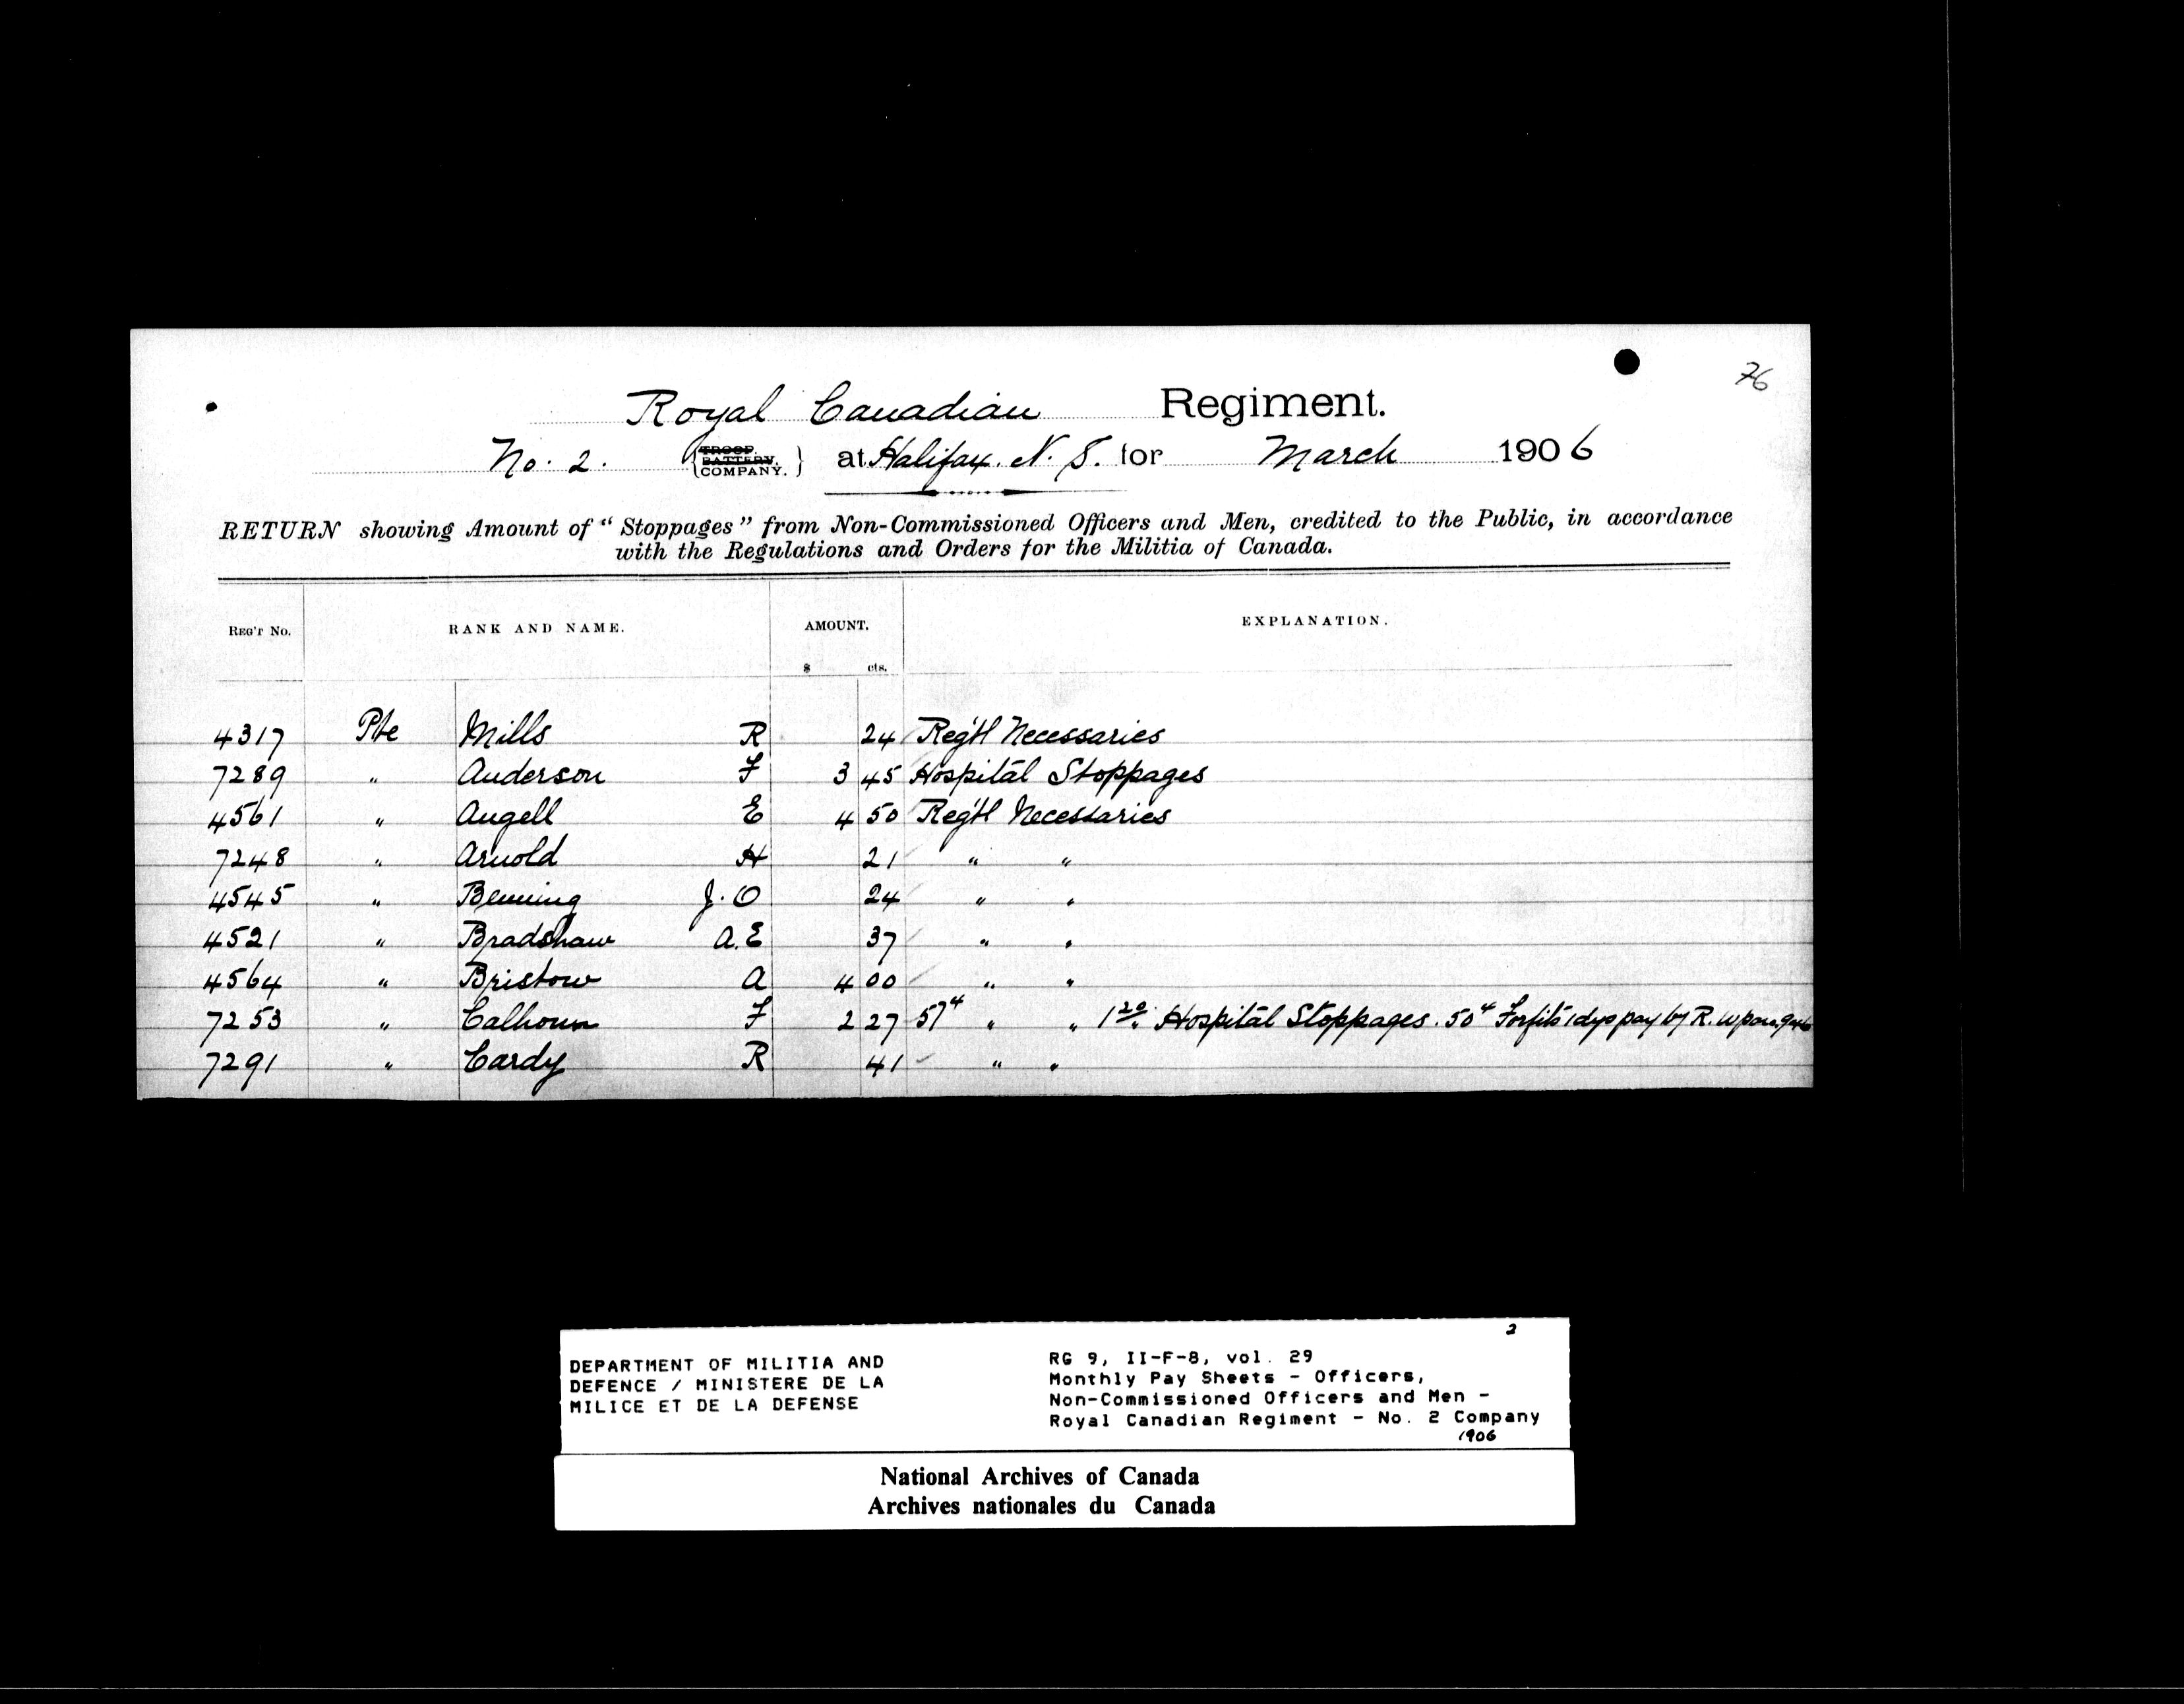 76
Royal Canadian Regiment.
No. 2. {TROOP. BATTERY. COMPANY.} at Halifax. N. S. for March 1906
RETURN showing Amount of "Stoppages" from Non-Commissioned Officers and Men, credited to the Public, in accordance
with the Regulations and Orders for the Militia of Canada.
REG'T No. RANK AND NAME. AMOUNT. EXPLANATION.
$ cts.
4317 Pte Mills R 24 Reg'tl Necessaries
7289 " Anderson F 3 45 Hospital Stoppages
4561 " Angell E 4 50 Reg'tl Necessaries
7248 " Arnold H 21 " "
4545 " Benning J. O 24 " "
4521 " Bradshaw A. E 37 " "
4564 " Bristow A 4 00 " "
7253 " Calhoun F 2 27 57¢ " " 1 20 " Hospital Stoppages. 50¢ Forfits 1 dys pay by R.
7291 " Cardy R 41 " "
2
DEPARTMENT OF MILITIA AND
DEFENCE / MINISTERE DE LA
MILICE ET DE LA DEFENSE
RG 9, II-F-8, vol. 29
Monthly Pay Sheets - Officers,
Non-Commissioned Officers and Men -
Royal Canadian Regiment - No. 2 Company
1906
National Archives of Canada
Archives nationales du Canada